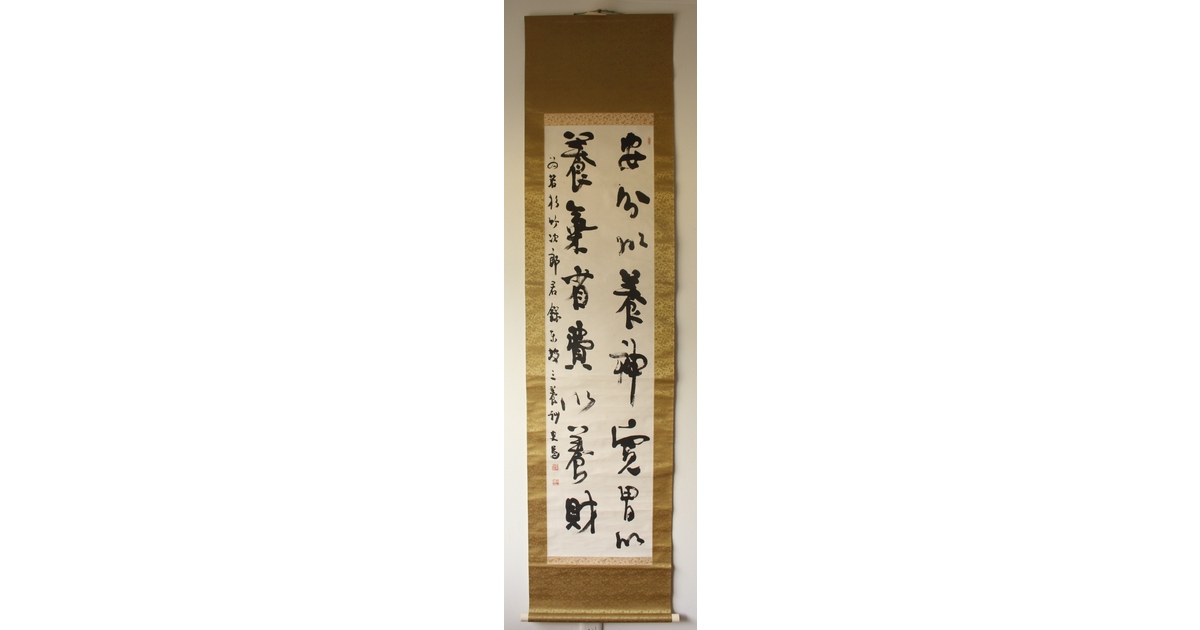 安分以養神寛胃以
養氣省費以養財
為若杉竹次郎君錄東坡三養訓